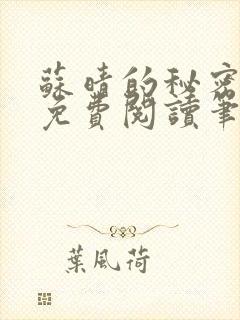 蘇晴的秘密
免費閱讀筆
葉風荷